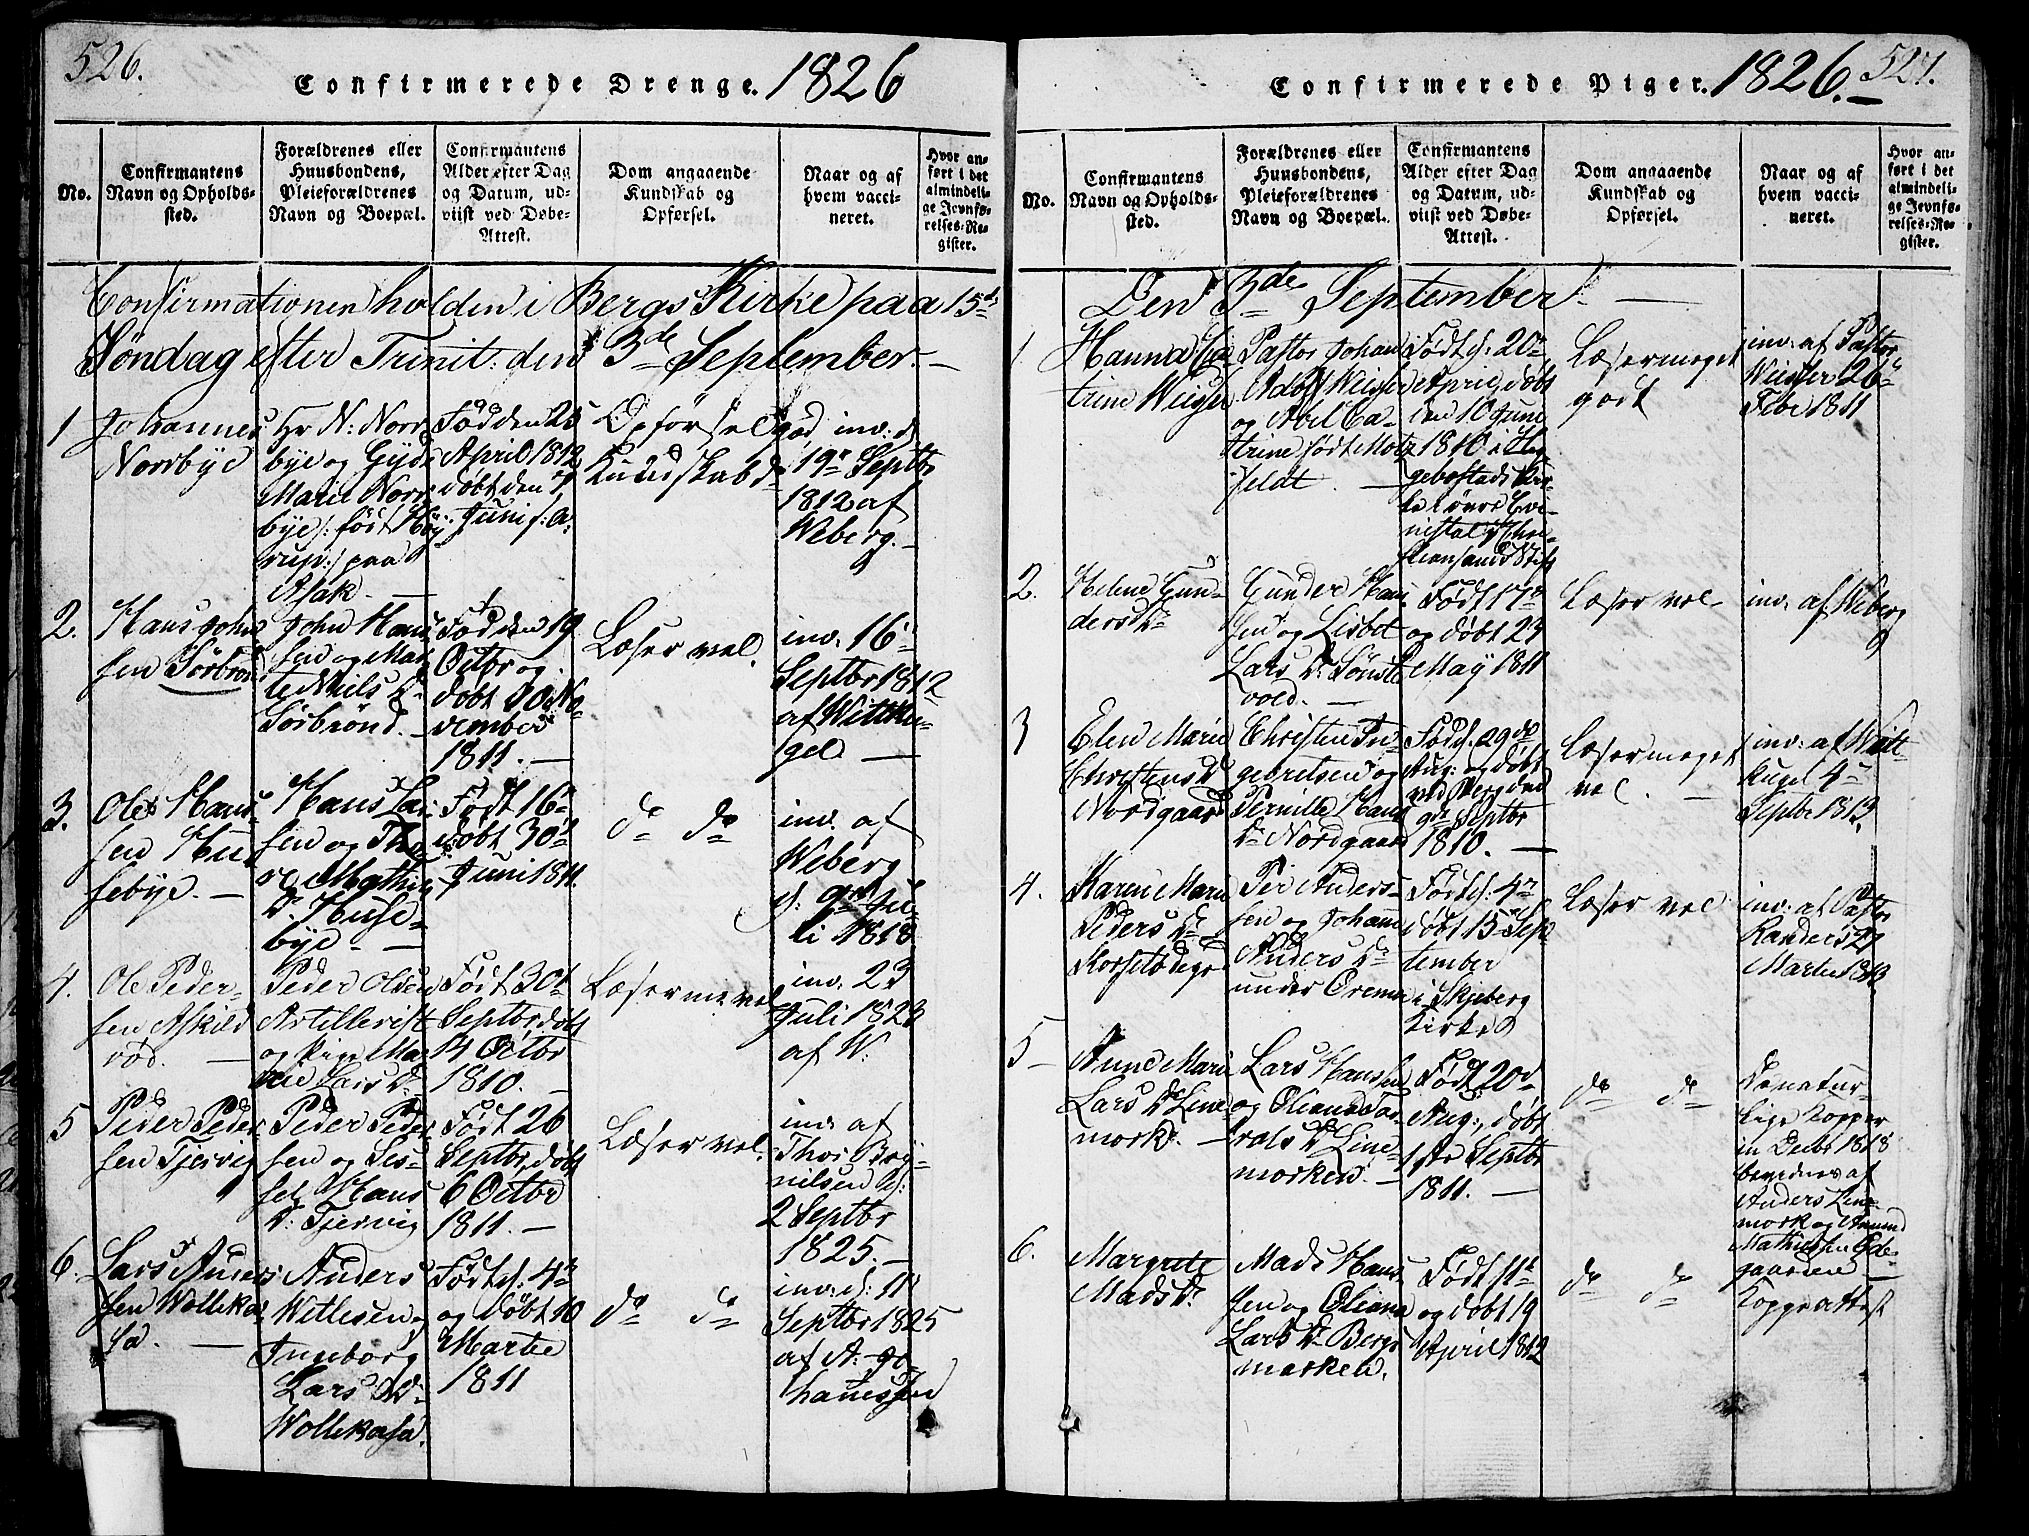 526.
Confirmerede Drenge. 1826
No.
Confirmantens
Navn og Opholds-
sted.
Forældrenes eller
Huusbondens,
Pleieforældrenes
Navn og Boepæl.
Confirmantens
Alder efter Dag
og Datum, ud-
viist ved Døbe-
Attest.
Dom angaaende
Kundskab og
Opførsel.
Naar og af
hvem vacci-
neret.
Hvor an-
ført i det
almindeli-
ge Jevnfø-
relses-Re-
gister.
Confirmationen holden i Bergs Kirke paa 15de
Søndag efter Trinit: den 3de September. —
1
Johannes
Norrbye
Hr N: Norr
bye og Gyde
Marie Norr
bye /: født Høy
rup :/ paa
Asak. —
Fød den 25
April 1812
døbt den 7
Juni s: A:
Opførsel god
Kundskab do
inv: d
19de Septbr
1812 af
Weberg. —
2.
Hans John
sen Sørbrød
John Hans
sen og Mar
te Niels Dr
Sørbrønd. —
Fød den 19
Octbr og
døbt 10 No
vember
1811. —
Læser vel.
inv: 16
Septbr 1812
af Wittku-
gel —
3.
Ole Hans-
sen Hu
sebye. —
Hans La
sen og Tho
re Mathis
Dr Huse-
bye —
Født 16de
døbt 30te
Juni 1811.
do do
inv. af
Weberg
d. 9de Ju-
li 1818
4.
Ole Peder-
sen Askild
rød. —
Peder Olsen
Artillerist
og pige Ma
rie Lars Dr
Født 30te
Septbr, døbt
14 Octbr
1810. —
Læser m. vel
inv: 23
Juli 1823
af W:
5
Peder Peder
sen Tjervig
Peder Peder
sen og Sis-
sel Hans
Dr Tjervig
Født 26
Septbr, døbt
6 Octbr
1811. —
Læser vel.
inv: af
Thor Bry-
nilsen d:
2 Septbr
1825. —
6
Lars Anders
sen Wolleka
sa. —
Anders
Wetlesen og
Ingeborg
Lars Dr
Wollekasa.
Født d: 4de
og døbt 10
Marti
1811
do do
inv: d: 11
Septbr 1825
af A. Jo-
hanessen
Confirmerede Piger. 1826. — 527.
No.
Confirmantens
Navn og Opholds-
sted.
Forældrenes eller
Huusbondens,
Pleieforældrenes
Navn og Boepæl.
Confirmantens
Alder efter Dag
og Datum, ud-
viist ved Døbe-
Attest.
Dom angaaende
Kundskab og
Opførsel.
Naar og af
hvem vacci-
neret.
Hvor an-
ført i det
almindeli-
ge Jevnfø-
relses-Re-
gister.
Den 3de September —
1
Hanna Ca
trine Weiger
Pastor Johan
Adolf Weiger
og Abel Ca-
trine født Motz
feldt. —
Født d: 20de
April, døbt
den 10 Juni
1810 i
gebostads Kir-
ke
Chri-
stiansand Stift
Læser meget
godt
inv: af Pastor
Weiger 26de
Febr 1811
2.
Helene Gun-
ders Dr
Gunder Han
sen og Lisbet
Lars Dr Sønste
vold. —
Født 17de
og døbt 23
May 1811
Læser vel
inv: af Weberg
3
Elen Marie
Christens Dr
Nordgaard
Christen In-
gebretsen og
Pernille Hans
Dr Nordgaard
Født d: 29de
Aug: og døbt
ved Berg den
9de Septbr
1810. —
Læser meget
vel. —
inv: af Witt-
kugel 4de
Septbr 1812.
4.
Karen Marie
Peders Dr
Korsetødegr
Per Anders-
sen og Johanne
Anders Dr
under Øreme
Født d: 4de
døbt 15 Sep
tember
i Skjeberg
Kirke
Læser vel
inv: af Pastor
Randers 27
Martii 1812
5 —
Anne Marie
Lars Dr Line
mork. —
Lars Hanssen
og Oleane Tor
rals Dr Line-
morken. —
Født 20de
Aug:, døbt
1ste Septbr
1811. —
do do
De natur-
lige Kopper
in Decbr 1818
bevidnes af
Anders Line
mork og Amund
Mathissen Øde-
gaarden —
6.
Margrete
Mads Dr
Mads Hans
sen og Oleana
Lars Dr Bergs
marken.
Født 11te
og døbt 19
April 1812
do do
Koppeattest